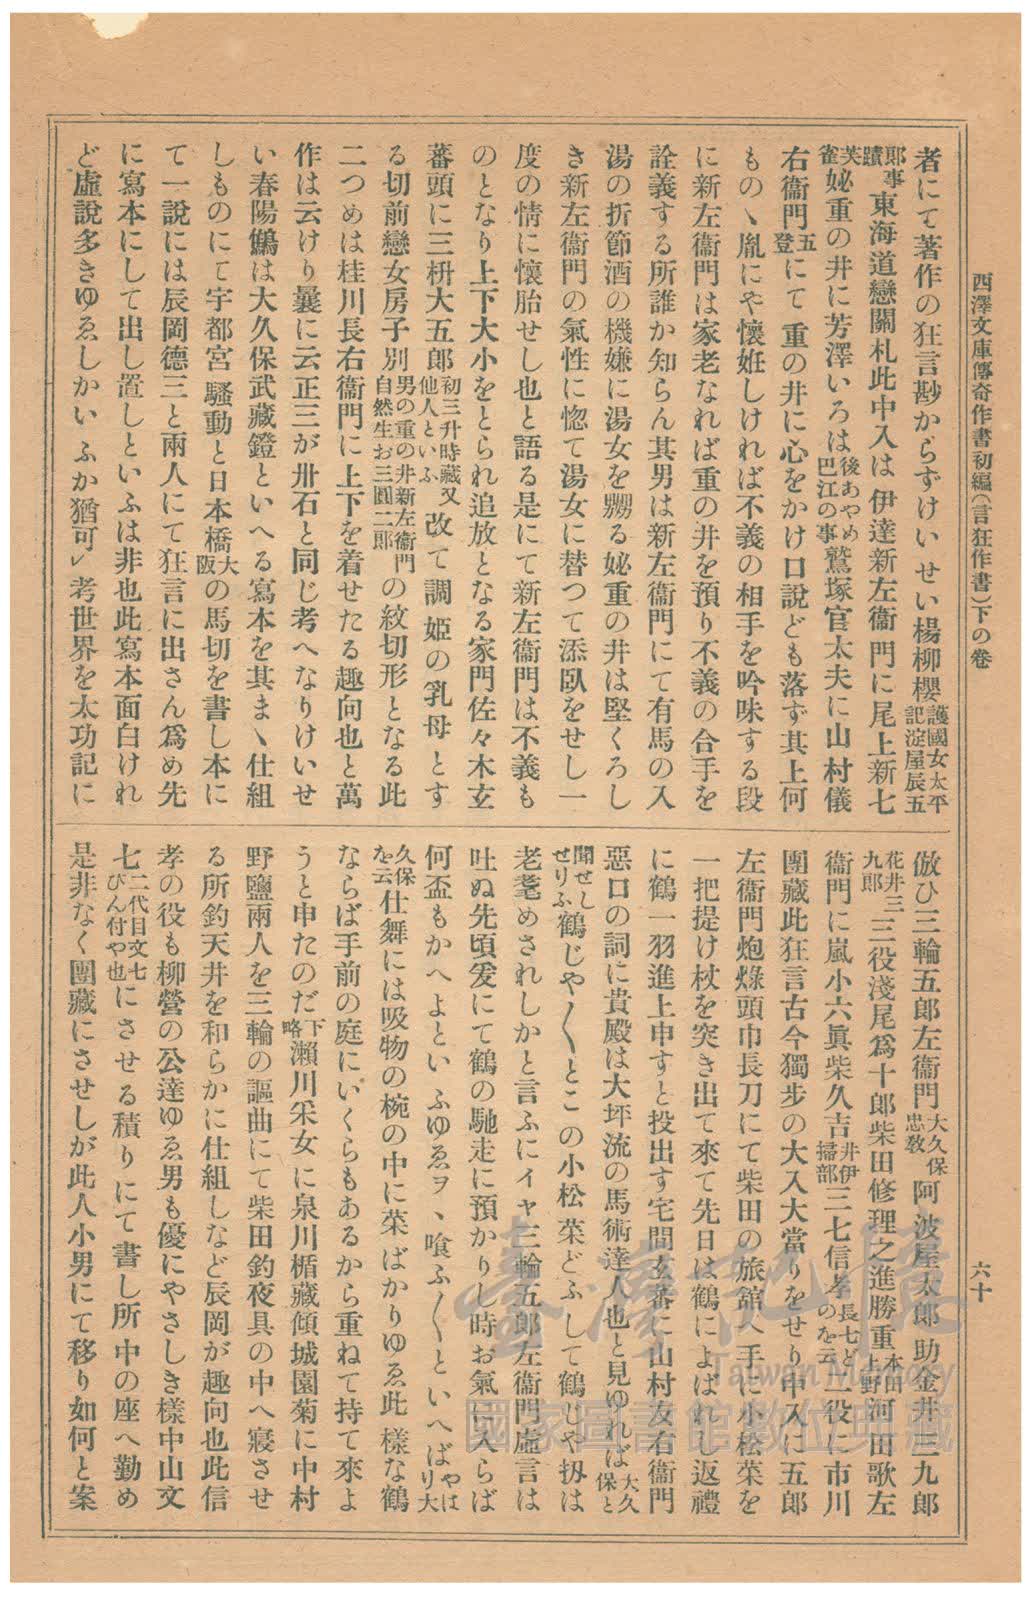 西澤文庫傳奇作書初編(言狂作書)下の卷
六十
者にて著作の狂言尠からずけいせい楊柳櫻護國女太平記淀屋辰五
郞事蹟東海道戀關札此中入は伊達新左衞門に尾上新七
芙雀妼重の井に芳澤いろは後あやめ巴江の事鷲塚官太夫に山村儀
右衞門五登にて重の井に心をかけ口說ども落ず其上何
ものゝ胤にや懷姙しければ不義の相手を吟味する段
に新左衞門は家老なれば重の井を預り不義の合手を
詮義する所誰か知らん其男は新左衞門にて有馬の入
湯の折節酒の機嫌に湯女を嬲る妼重の井は堅くろし
き新左衞門の氣性に惚て湯女に替つて添臥をせし一
度の情に懷胎せし也と語る是にて新左衞門は不義も
のとなり上下大小をとられ追放となる家門佐々木玄
蕃頭に三枡大五郞初三升時藏又他人といふ改て調姬の乳母とす
る切前戀女房子別男の重の井新左衞門自然生お三圓二郞の紋切形となる此
二つめは桂川長右衞門に上下を着せたる趣向也と萬
作は云けり曩に云正三が卅石と同じ考へなりけいせ
い春陽鷦は大久保武藏鐙といへる寫本を其まゝ仕組
しものにて宇都宮騷動と日本橋大阪の馬切を書し本に
て一說には辰岡德三と兩人にて狂言に出さん爲め先
に寫本にして出し置しといふは非也此寫本面白けれ
ど虛說多きゆゑしかいふか猶可レ考世界を太功記に
倣ひ三輪五郞左衞門大久保忠敎阿波屋太郞助金井三九郞
花井三九郞三役淺尾爲十郞柴田修理之進勝重本田上野河田歌左
衞門に嵐小六眞柴久吉井伊掃部三七信孝長七どのを云二役に市川
團藏此狂言古今獨步の大入大當りをせり中入に五郞
左衞門炮烙頭巾長刀にて柴田の旅舘へ手に小松菜を
一把提け杖を突き出て來て先日は鶴によばれし返禮
に鶴一羽進上申すと投出す宅間玄蕃に山村友右衞門
惡口の詞に貴殿は大坪流の馬術達人也と見ゆれば大久保と
聞せしせりふ鶴じや〱とこの小松菜どふして鶴じや扨は
老耄めされしかと言ふにイヤ三輪五郞左衞門虛言は
吐ぬ先頃爰にて鶴の馳走に預かりし時お氣に入らば
何盃もかへよといふゆゑヲヽ喰ふ〱といへばやはり大
久保を云仕舞には吸物の椀の中に菜ばかりゆゑ此樣な鶴
ならば手前の庭にいくらもあるから重ねて持て來よ
うと申たのだ下略瀨川采女に泉川楯藏傾城園菊に中村
野鹽兩人を三輪の謳曲にて柴田釣夜具の中へ寢させ
る所釣天井を和らかに仕組しなど辰岡が趣向也此信
孝の役も柳營の公達ゆゑ男も優にやさしき樣中山文
七二代目文七びん付や也にさせる積りにて書し所中の座へ勤め
是非なく團藏にさせしが此人小男にて移り如何と案
臺灣記憶
Taiwan Memory
國家圖書館數位典藏